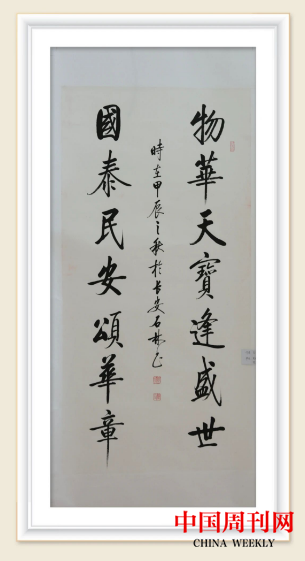 物華天寶逢盛世
時在甲辰之秋於長安石林正
國泰民安頌華章
中国周刊网
CHINA WEEKLY